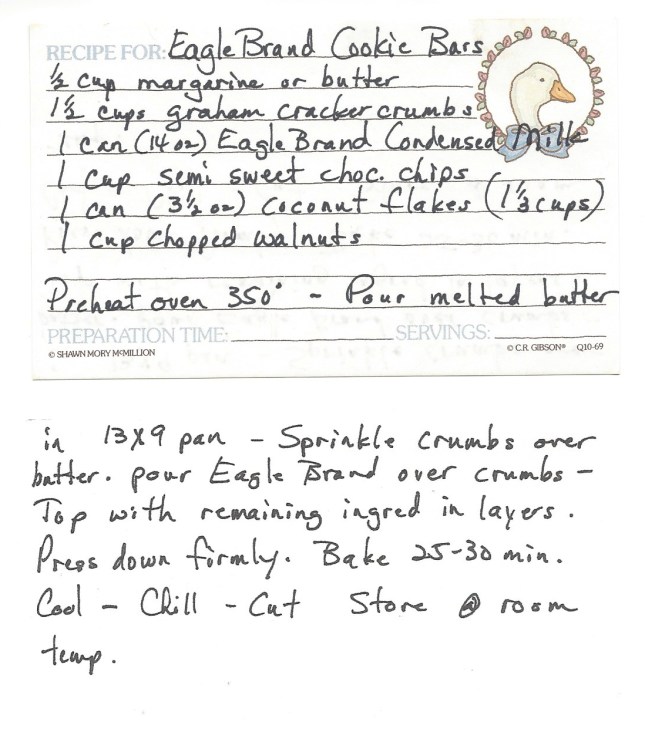 RECIPE FOR: Eagle Brand Cookie Bars
½ cup margarine or butter
1½ cups graham cracker crumbs
1 can (14 oz) Eagle Brand Condensed Milk
1 cup semi sweet choc. chips
1 can (3½ oz) Coconut flakes (1⅓ cups)
1 cup chopped walnuts
Preheat oven 350° - Pour melted butter
PREPARATION TIME: SERVINGS:
© SHAWN MORY McMILLION © C.R. GIBSON® Q10-69
in 13x9 pan - Sprinkle crumbs over
butter. pour Eagle Brand over crumbs -
Top with remaining ingred in layers.
Press down firmly. Bake 25-30 min.
Cool - Chill - Cut Store @ room
temp.